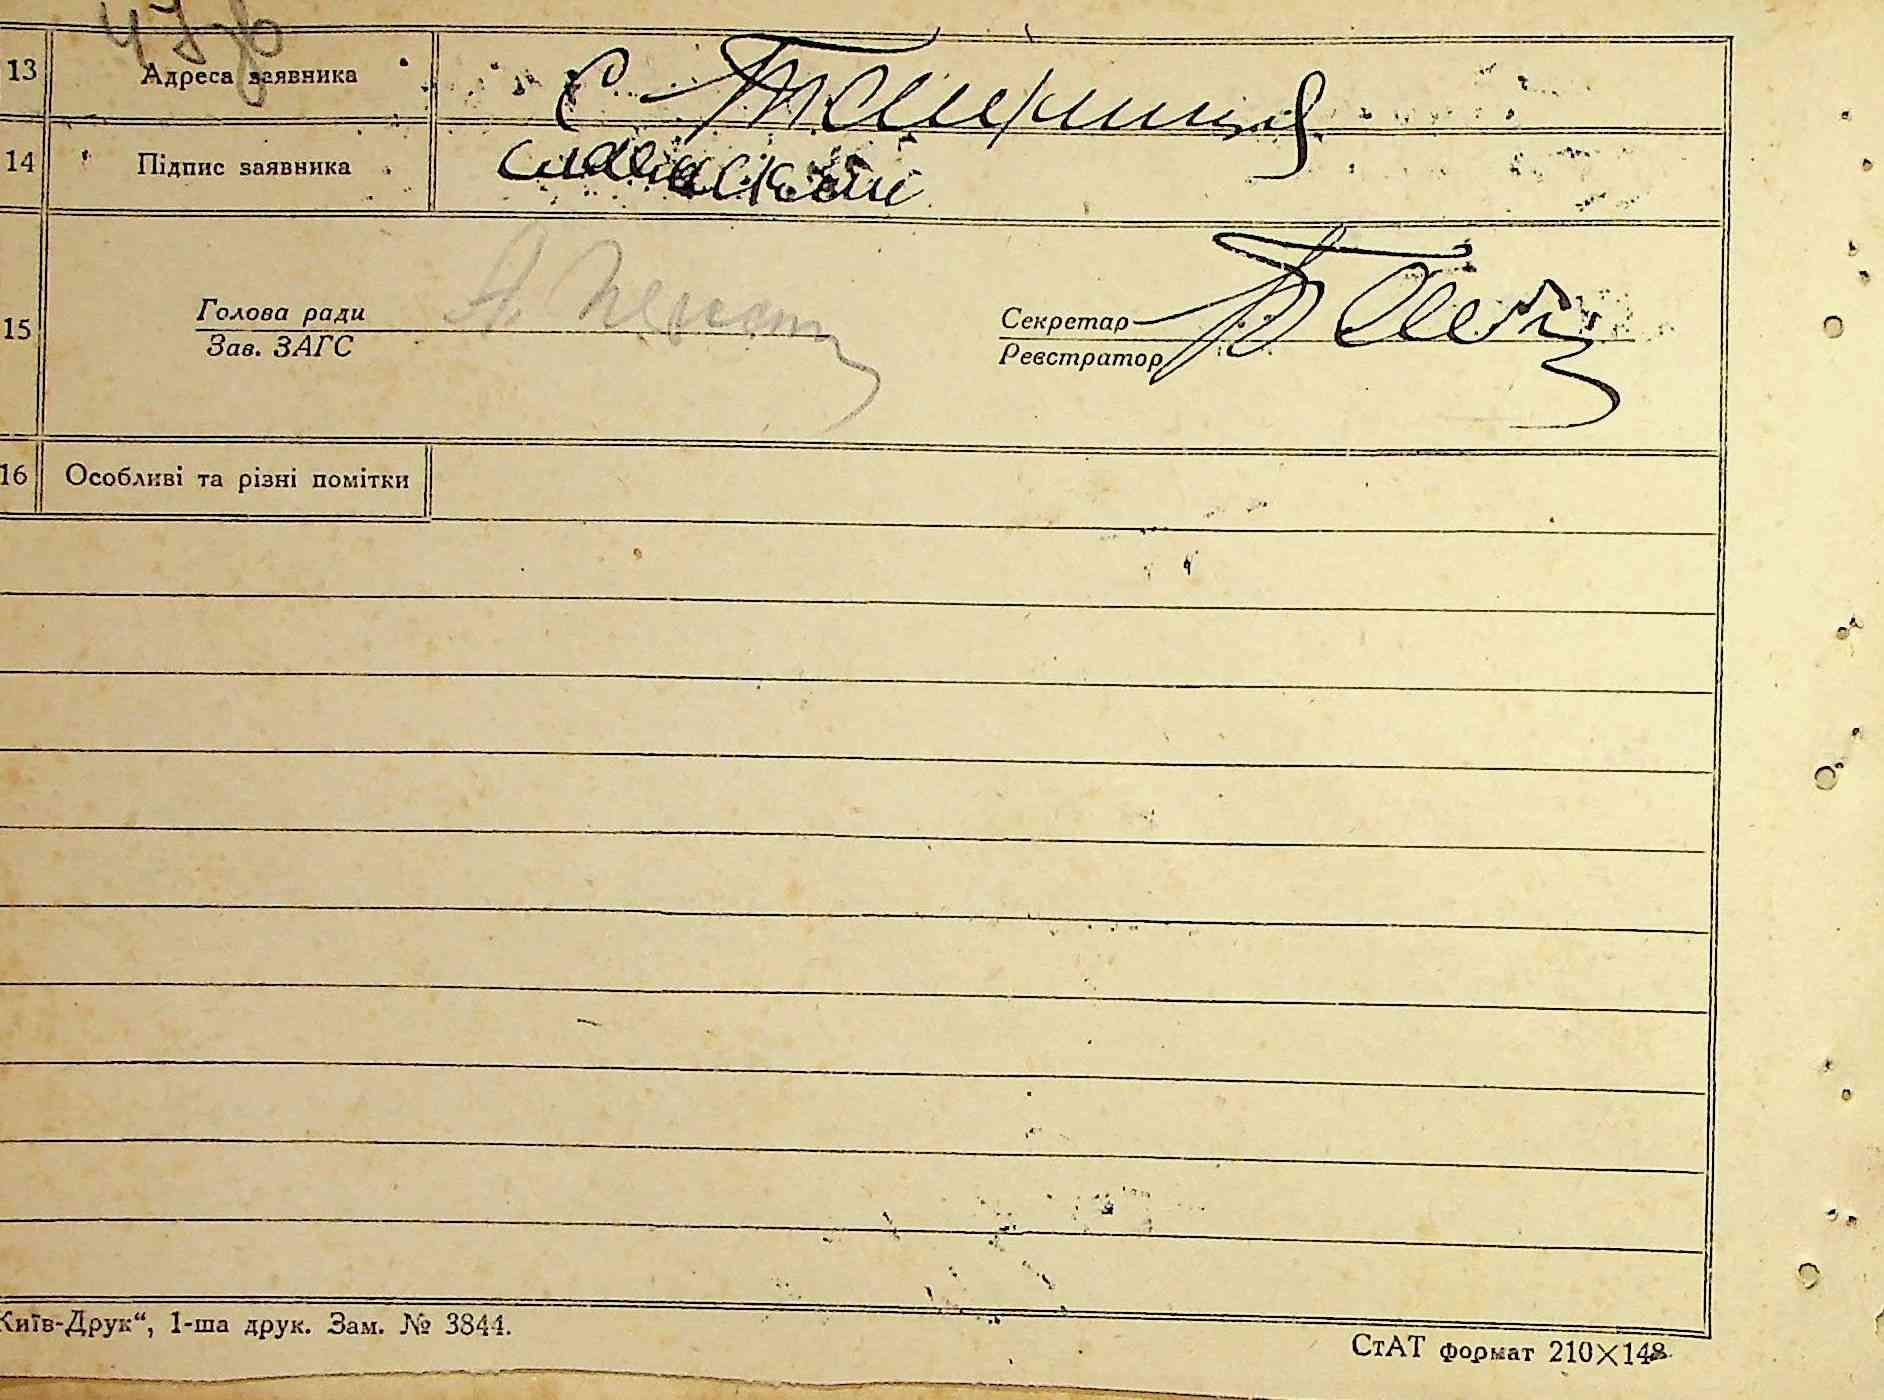 13 Адреса заявника с Ташлиця
14 Підпис заявника
15 Голова ради Секретар
Зав. ЗАГС Реєстратор
16 Особливі та різні помітки
Київ-Друк“, 1-ша друк. Зам. № 3844.
СтАТ формат 210×148